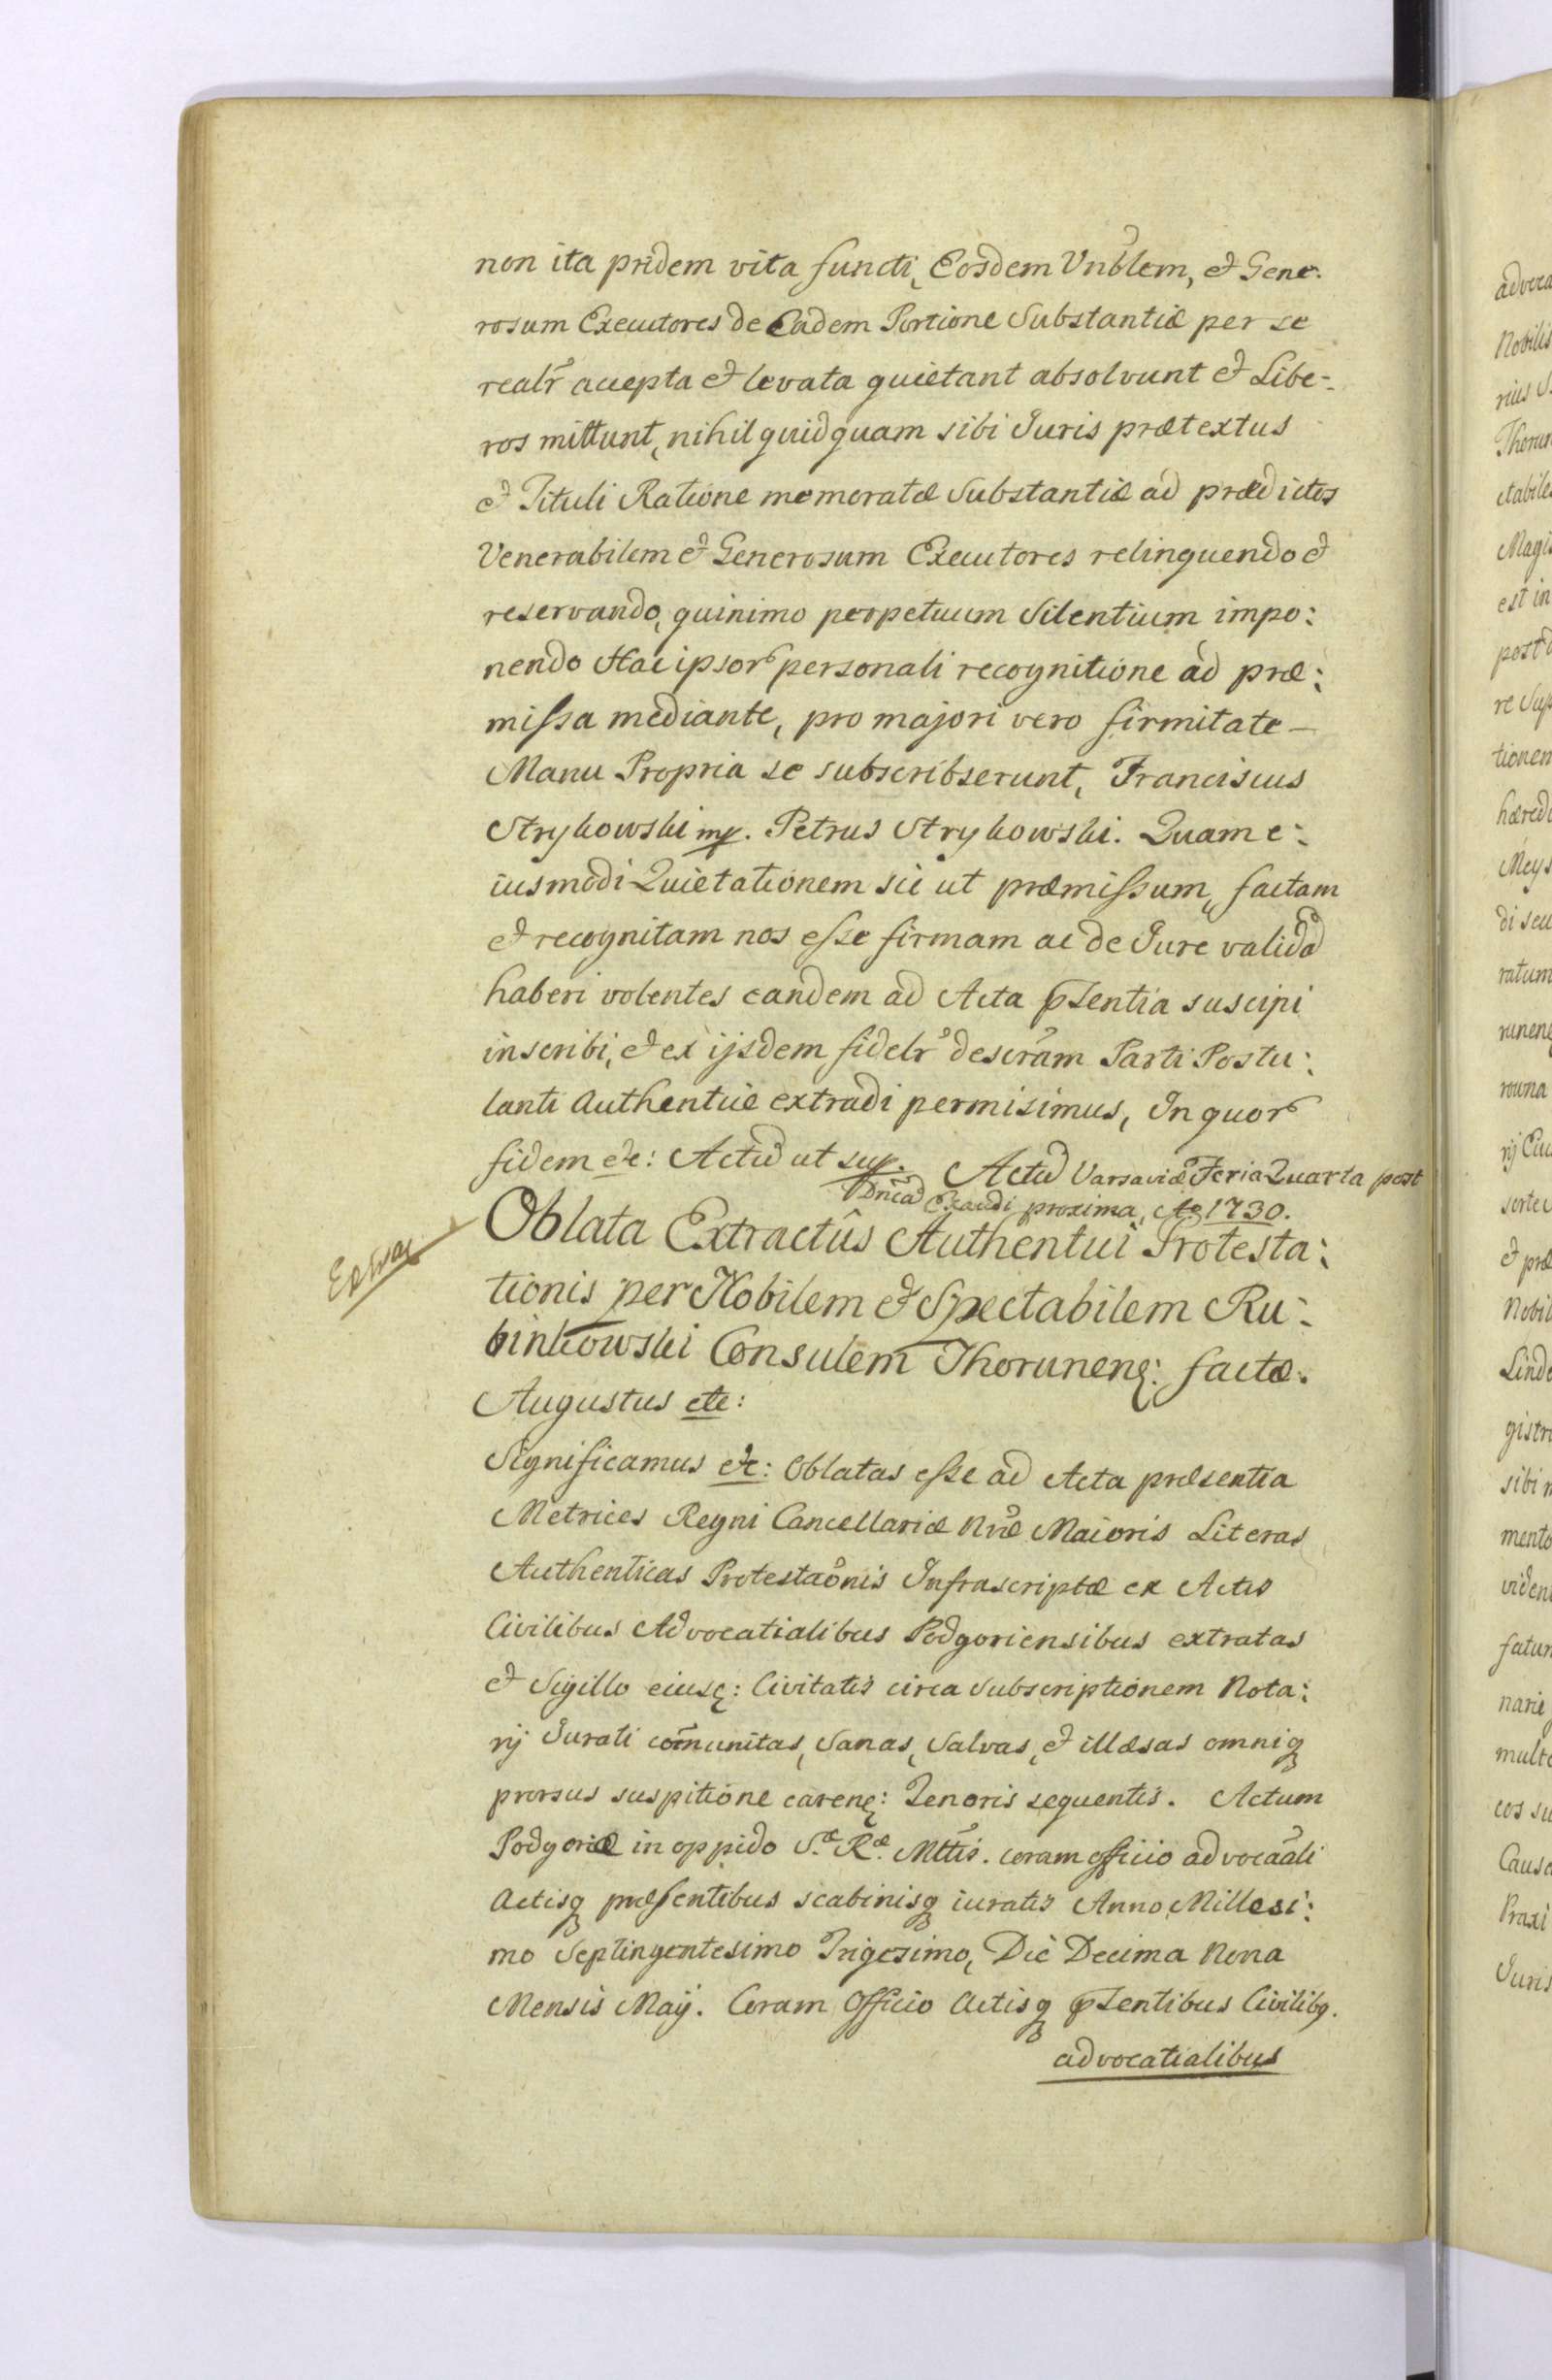 non ita pridem vita functi, Eosdem Vnblem, et Gene:
rosum Executores de Eadem Portione Substantiæ per se
realr̃ accepta et levata quietant absolvunt et Libe-
ros mittunt, nihil quidquam sibi Juris prætextus
et Tituli Ratione memoratæ Substantiæ ad prædictos
Venerabilem et Generosum Executores relinquendo et
reservando, quinimo perpetuum Silentium impo:
nendo Hac ipsor personali recognitione ad præ:
missa mediante, pro majori vero firmitate –
Manu Propria se subscribserunt, Franciscus
Strykowski mp. Petrus Strykowski. Quam e:
iusmodi Quietationem sic ut præmissum, factam
et recognitam nos esse firmam ac de Jure validã
haberi volentes eandem ad Acta pñtentia suscipi
inscribi, et ex ijsdem fidelr̃ descrãm Parti Postu:
lanti Authentice extradi permisimus, In quor
fidem etc: Actũ ut sup.
Actũ Varsaviæ Feria Quarta post
Dnicã Exaudi proxima, Ao 1730.
Extrac
Oblata Extractûs Authentici Protesta:
tionis per Nobilem et Spectabilem Ru:
binkowski Consulem Thorunenę: factæ.
Augustus etc:
Significamus etc: Oblatas esse ad Acta præsentia
Metrices Regni Cancellariæ Nræ Maioris Literas
Authenticas Protestaõnis Infrascriptæ ex Actis
Civilibus Advocatialibus Podgoriensibus extratas
et Sigillo eiusę: Civitatis circa Subscriptionem Nota:
rij Jurati com̃unitas, Sanas, Salvas, et illæsas omniq
prorsus suspitione carenę: Tenoris sequentis. Actum
Podgoriæ in oppido S.æ R.æ Mttis. coram officio advocaãli
Actisq præsentibus scabinisq iuratis Anno Millesi:
mo Septingentesimo Trigesimo, Die Decima Nona
Mensis Maÿ. Coram Officio Actisq pñtentibus Civilibq.
advocatialibus
advoca
Nobilis
rius S
Thorun
ctabile
Magis
est in
post
re Sup
tionem
hæredi
Meys
di seu
ratum
runenę
rowna
rij Ciu
sorte
et præ
Nobil
Linde
gistr
sibi
mento
viden
fatur
narie
multo
eos su
Causa
Praxi
Juris